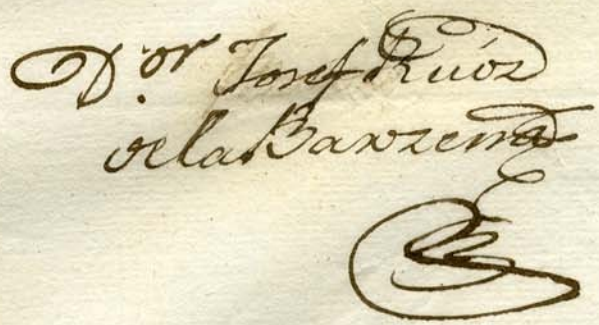 D.or Josef Ruiz
de la Barzena